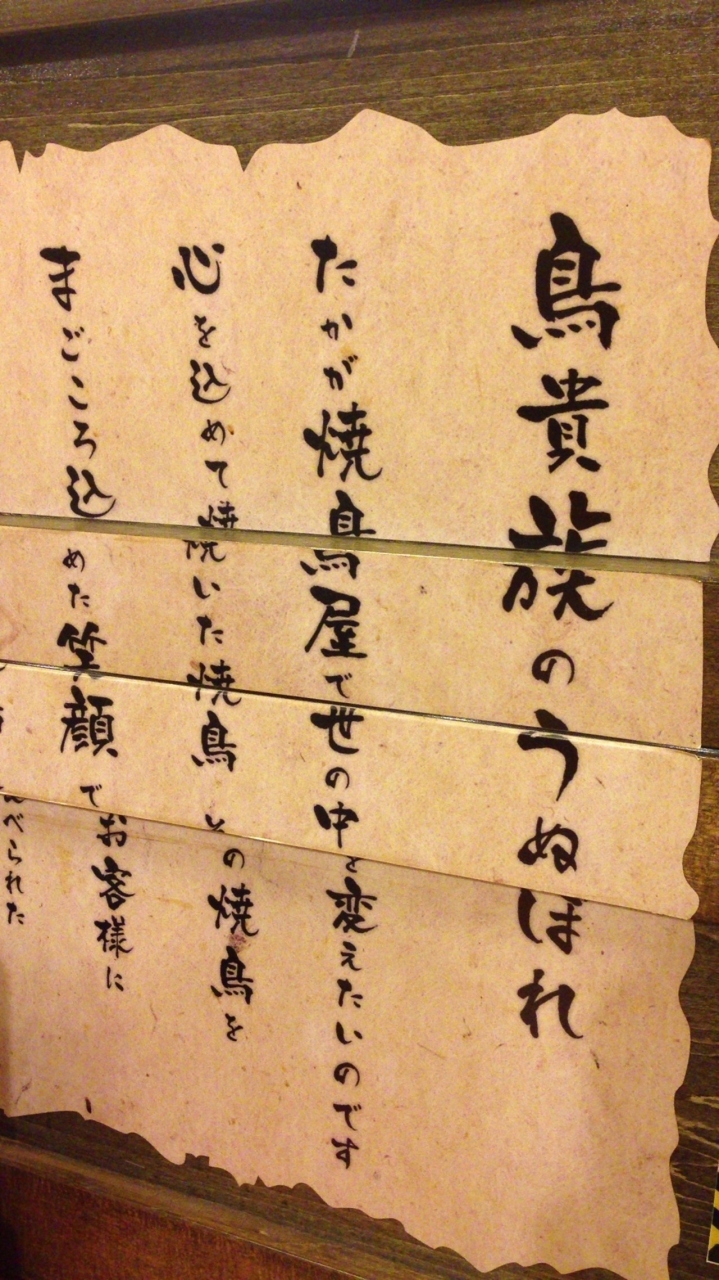 鳥貴族のうぬぼれ
たかが焼鳥屋で世の中を変えたいのです
心を込めて焼いた焼鳥 その焼鳥を
まごころ込めた笑顔でお客様に
べられた